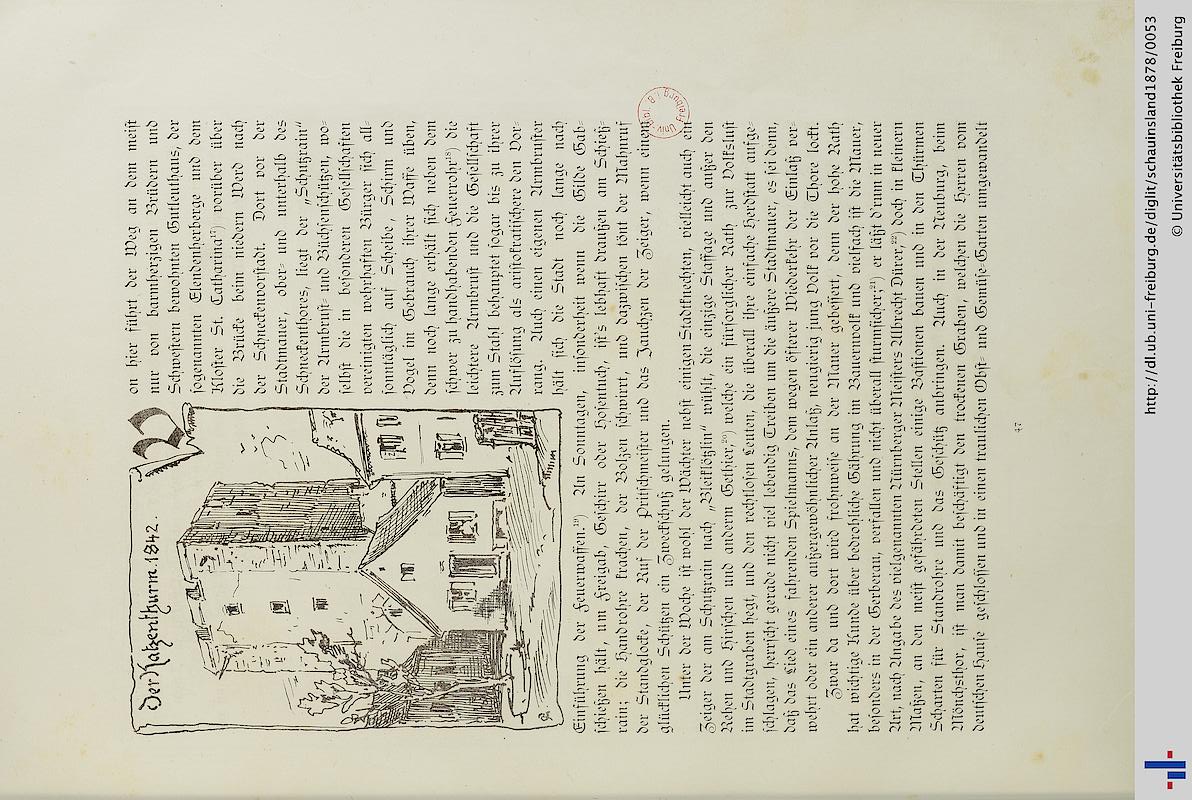 Der Katzenthurm. 1842.
Von hier führt der Weg an dem meist
nur von barmherzigen Brüdern und
Schwestern bewohnten Gutleuthaus, der
sogenannten Elendenherberge und dem
Kloster St. Catharina¹⁷) vorüber über
die Brücke beim niedern Werd nach
der Schneckenvorstadt. Dort vor der
Stadtmauer, ober- und unterhalb des
Schneckenthores, liegt der „Schutzrain“
der Armbrust- und Büchsenschützen, wo-
selbst die in besonderen Gesellschaften
vereinigten wehrhaften Bürger sich all-
sonntäglich auf Scheibe, Schirm und
Vogel im Gebrauch ihrer Waffe üben,
denn noch lange erhält sich neben dem
schwer zu handhabenden Feuerrohr¹⁸) die
leichtere Armbrust und die Gesellschaft
zum Stahl behauptet sogar bis zu ihrer
Auflösung als aristokratischere den Vor-
rang. Auch einen eigenen Armbruster
hält sich die Stadt noch lange nach
Einführung der Feuerwaffen.¹⁹) An Sonntagen, insonderheit wenn die Gilde Gab-
schießen hält, um Freigab, Geschirr oder Hosentuch, ist's lebhaft draußen am Schieß-
rain; die Handrohre krachen, der Bolzen schwirrt, und dazwischen tönt der Mahnruf
der Standglocke, der Ruf der Pritschmeister und das Jauchzen der Zeiger, wenn einem
glücklichen Schützen ein Zweckschuß gelungen.
Unter der Woche ist wohl der Wächter nebst einigen Stadtknechten, vielleicht auch ein
Zeiger der am Schutzrain nach „Bleiklötzlin“ wühlt, die einzige Staffage und außer den
Rehen und Hirschen und anderm Gethier,²⁰) welche ein fürsorglicher Rath zur Volkslust
im Stadtgraben hegt, und den rechtlosen Leuten, die überall ihre einfache Herdstatt aufge-
schlagen, herrscht gerade nicht viel lebendig Treiben um die äußere Stadtmauer, es sei denn,
daß das Lied eines fahrenden Spielmanns, dem wegen öfterer Wiederkehr der Einlaß ver-
wehrt oder ein anderer außergewöhnlicher Anlaß, neugierig jung Volk vor die Thore lockt.
Zwar da und dort wird frohnweise an der Mauer gebessert, denn der hohe Rath
hat wichtige Kunde über bedrohliche Gährung im Bauernvolk und vielfach ist die Mauer,
besonders in der Gerberau, verfallen und nicht überall sturmsicher:²¹) er läßt d'rum in neuer
Art, nach Angabe des vielgenannten Nürnberger Meisters Albrecht Dürer,²²) doch in kleinern
Maßen, an den meist gefährdeten Stellen einige Bastionen bauen und in den Thürmen
Scharten für Standrohre und das Geschütz anbringen. Auch in der Neuburg, beim
Mönchsthor, ist man damit beschäftigt den trockenen Graben, welchen die Herren vom
deutschen Hause geschlossen und in einen traulichen Obst- und Gemüse-Garten umgewandelt
47
Univ.-Bibl. Freiburg i. B.
http://dl.ub.uni-freiburg.de/diglit/schauinsland1878/0053
© Universitätsbibliothek Freiburg